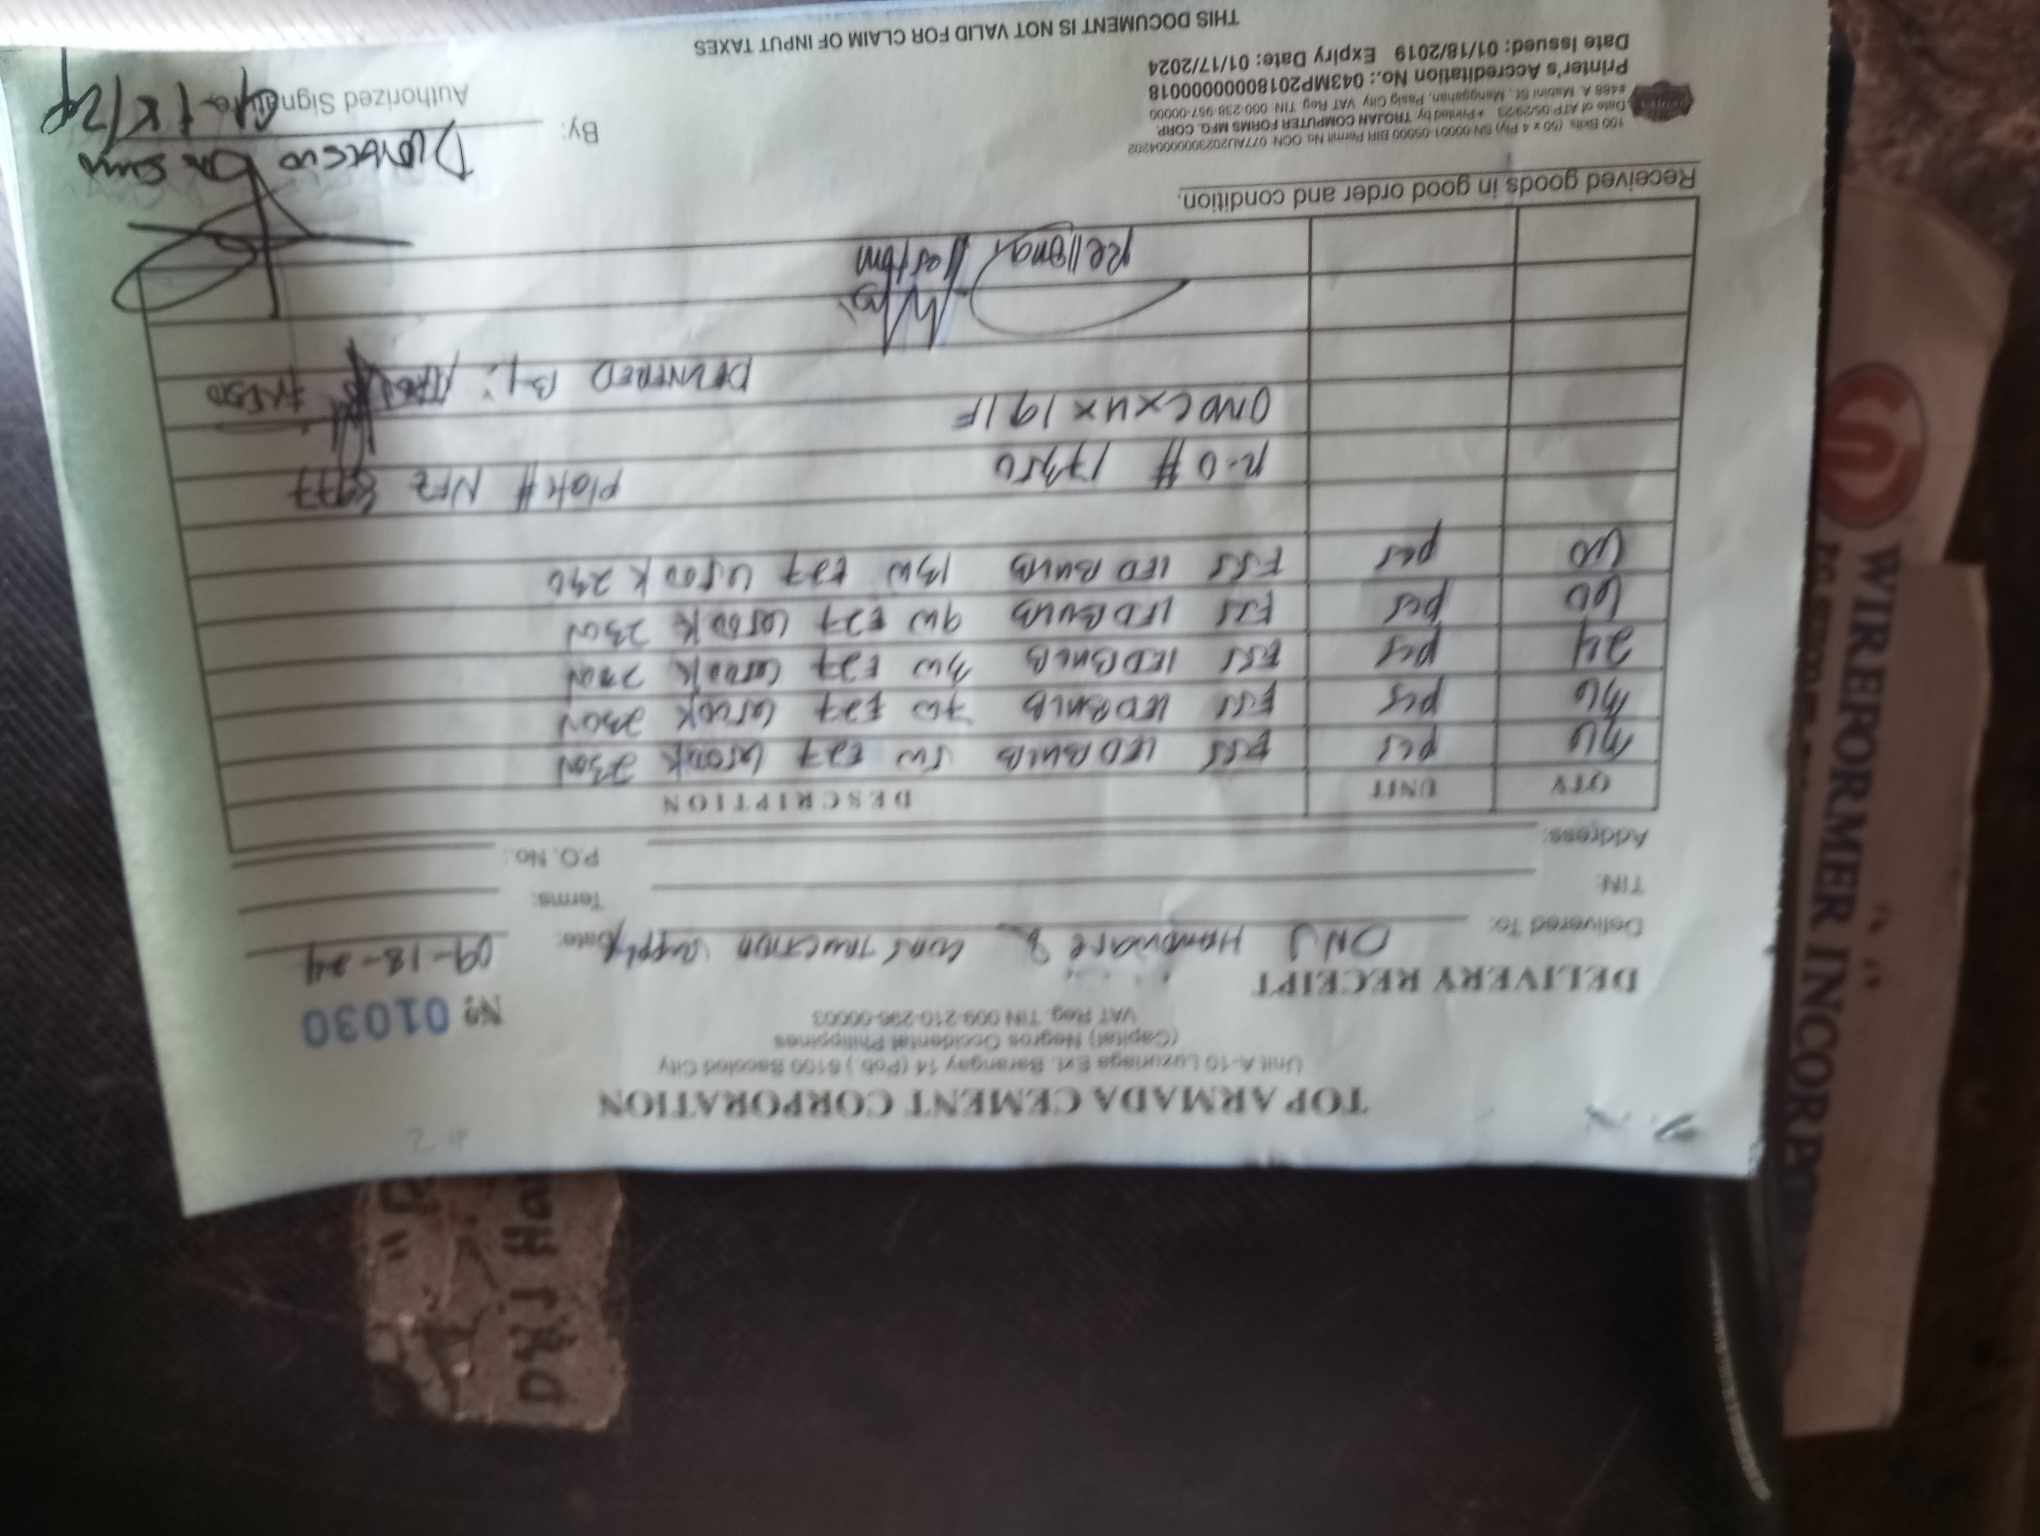 TOP ARMADA CEMENT CORPORATION
Unit A-10 Luzuriaga Ext. Barangay 14 (Pob.) 6100 Bacolod City
(Capital) Negros Occidental Philippines
VAT Reg. TIN 009-210-296-00003
DELIVERY RECEIPT
№ 01030
Delivered To: DNJ Hardware & Construction Supply Date: 09-18-24
TIN: Terms:
Address: P.O. No.:
QTY UNIT DESCRIPTION
36 pcs FSL LED BULB 5W E27 6500K 230V
36 pcs FSL LED BULB 7W E27 6500K 230V
24 pcs FSL LED BULB 3W E27 6500K 230V
60 pcs FSL LED BULB 9W E27 6500K 230V
60 pcs FSL LED BULB 13W E27 6500K 230
Plate # NFZ
DELIVERED BY:
Received goods in good order and condition.
100 Bkts. (50 x 4 Ply) SN 00001-05000 BIR Permit No. OCN 077AU20230000004202
Date of ATP 05/29/23 • Printed by TROJAN COMPUTER FORMS MFG. CORP.
#486 A. Mabini St., Manggahan, Pasig City VAT Reg. TIN 000-238-957-00000
Printer's Accreditation No.: 043MP20180000000018
Date Issued: 01/18/2019 Expiry Date: 01/17/2024
By:
Authorized Signature
THIS DOCUMENT IS NOT VALID FOR CLAIM OF INPUT TAXES
WIREFORMER INCORP
D&J Ha